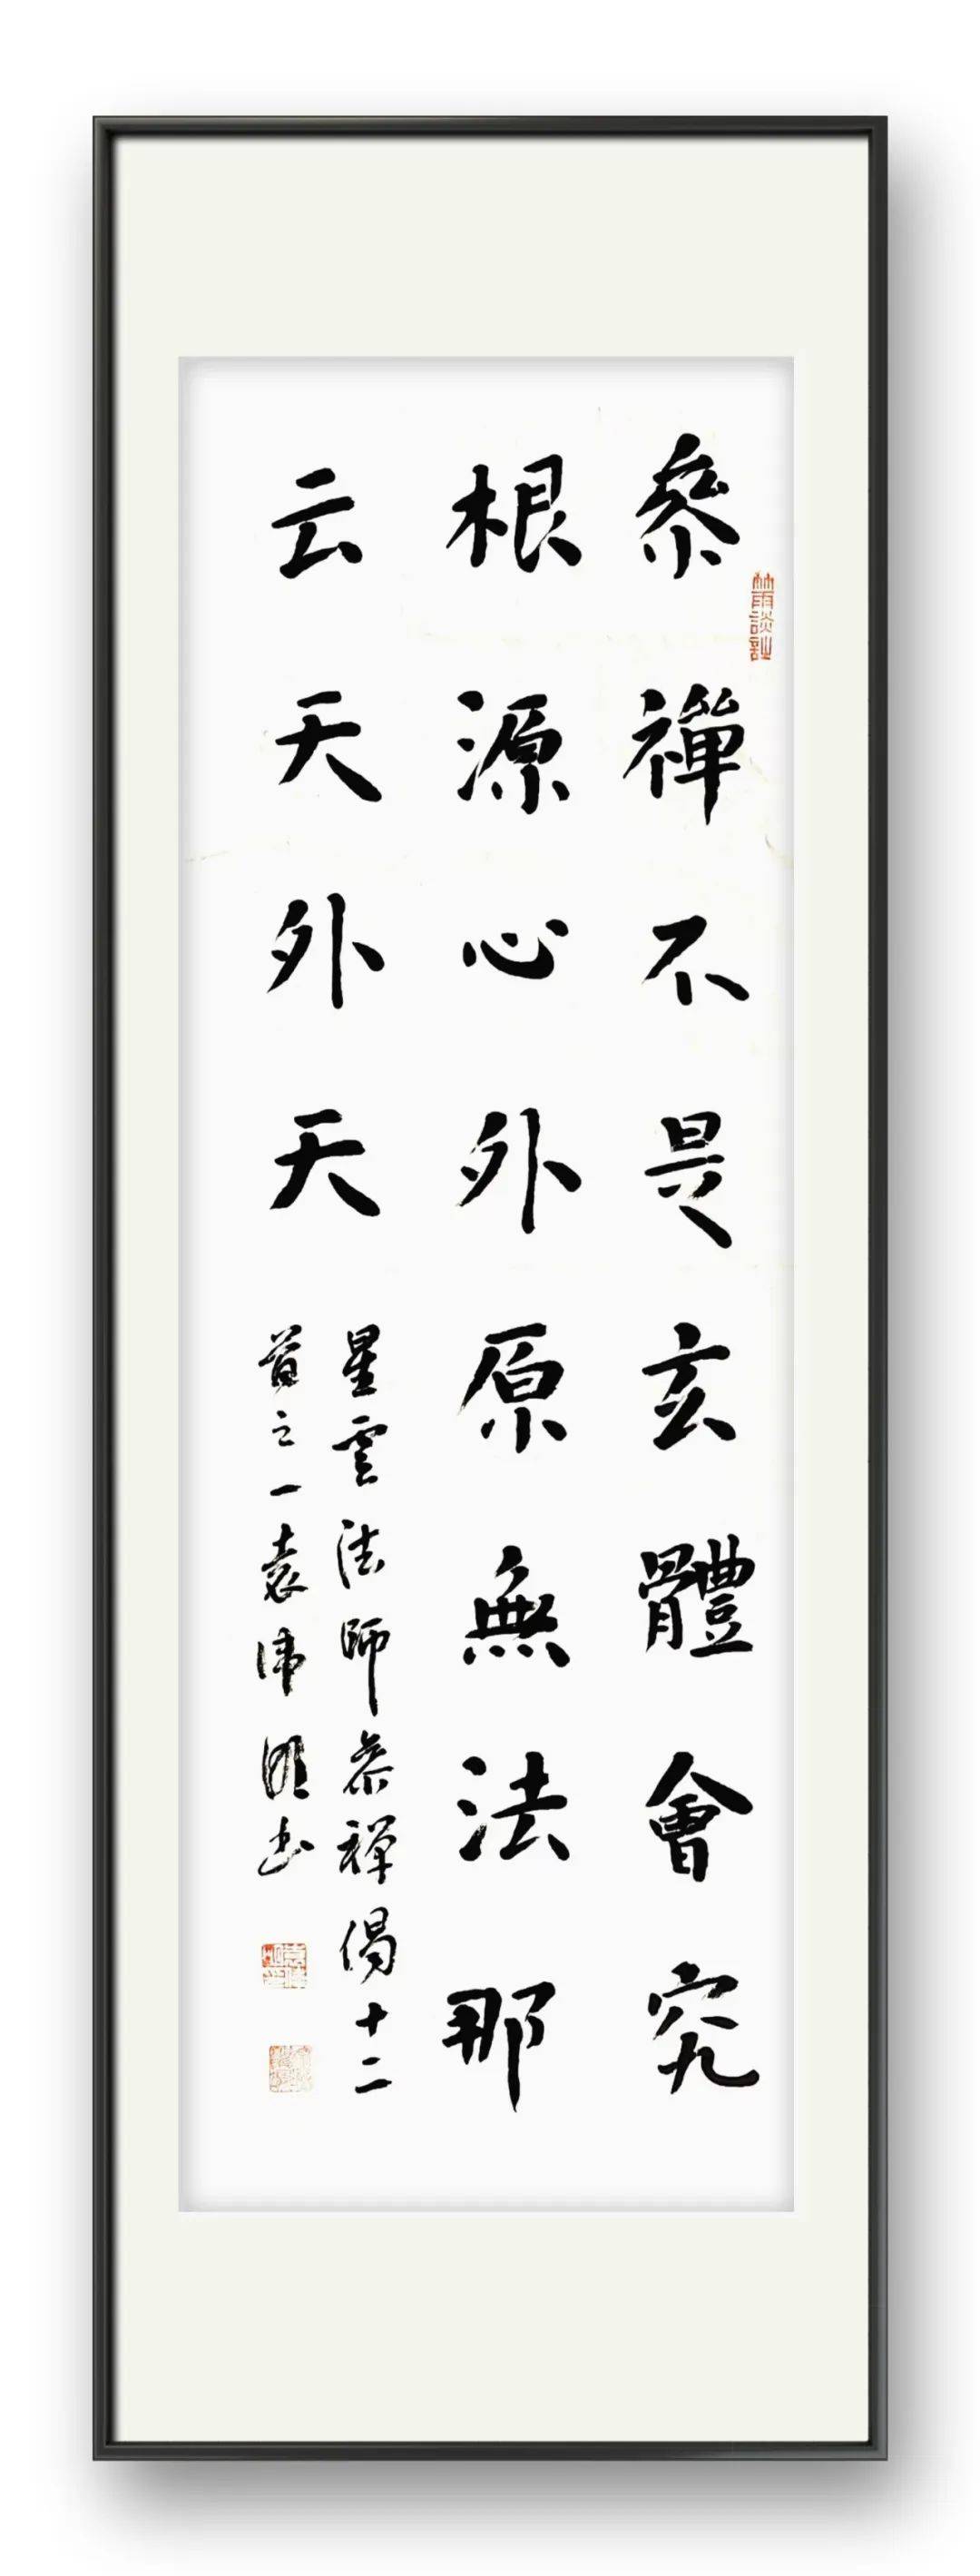 竹雨談詩
參禪不是玄體會究
根源心外原無法那
云天外天
星雲法師參禪偈十二
首之一袁明书